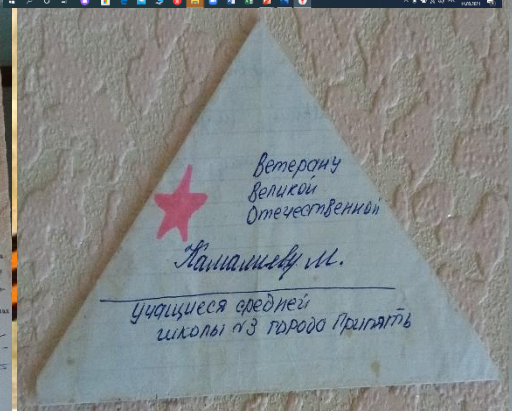 Ветерану
Великой
Отечественной
Камалиеву М.
Учащиеся средней
школы №3 города Припять